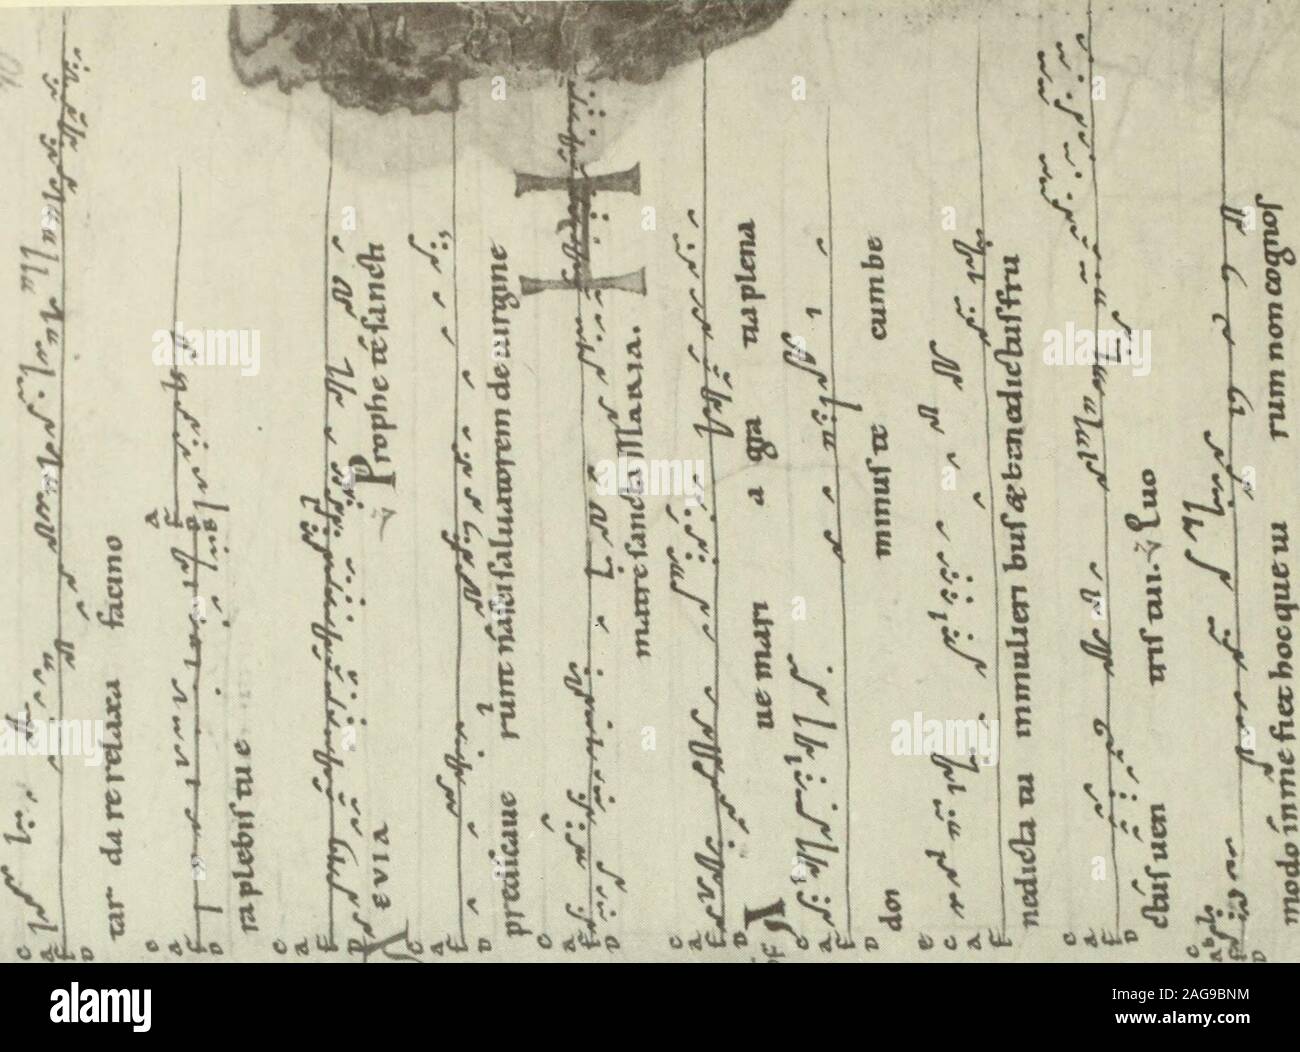 tar da re relaxa facino
ra plebis tu e
evia Prophete sancti
predicaue runt nasci saluatorem de uirgine
matre sancta Maria.
OF A ue mari a gra tia plena
do minus te cum be
nedicta tu in mulieri bus & benedictus fru
ctus uen tris tui. Quo
modo in me fiet hoc que ui rum non cognos
alamy
2AG9BNM
www.alamy.com